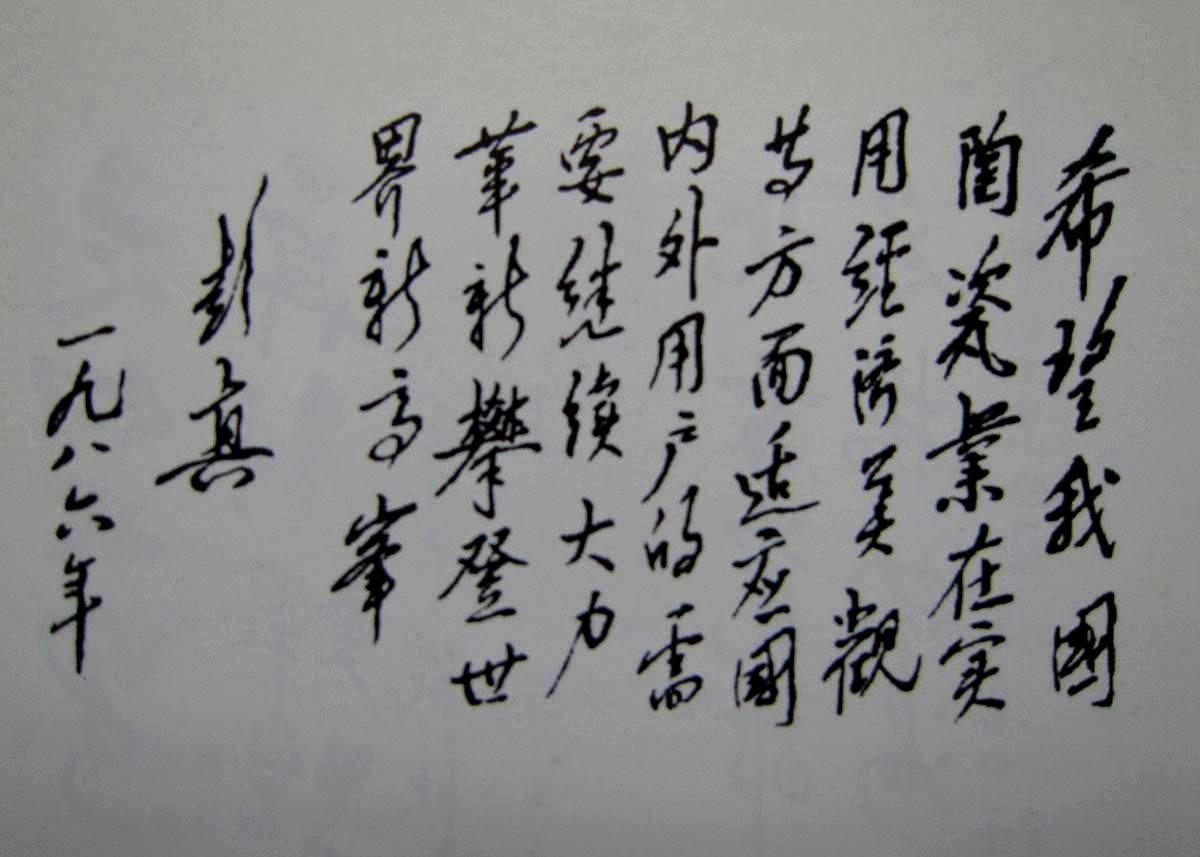 希望我國
陶瓷業在实
用經濟美觀
等方面适应國
内外用户的需
要继续大力
革新攀登世
界新高峯
彭真
一九八六年